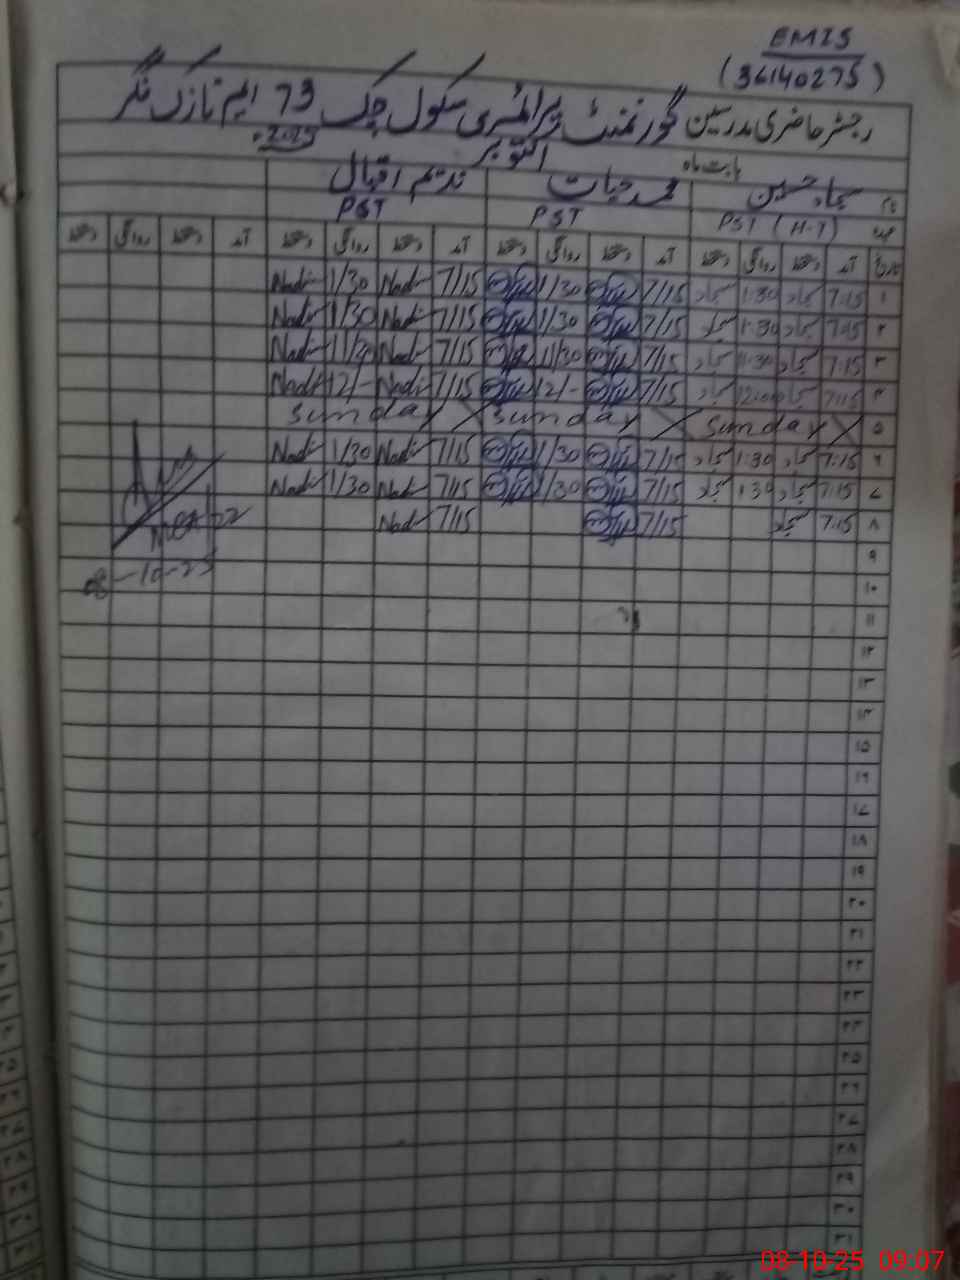 EMIS
(36140275)
رجسٹر حاضری مدرسین گورنمنٹ پرائمری سکول چک 73 ایم نازک نگر
بابت ماہ اکتوبر 2025
نام سجاد حسین محمد حیات ندیم اقبال
عہدہ PST (H-T) PST PST
تاریخ آمد دستخط روانگی دستخط آمد دستخط روانگی دستخط آمد دستخط روانگی دستخط آمد دستخط روانگی دستخط
۱ 7:15 سجاد 1:30 سجاد 7/15 1/30 7/15 Nadi 1/30 Nadi
۲ 7:15 سجاد 1:30 سجاد 7/15 1/30 7/15 Nadi 1/30 Nadi
۳ 7:15 سجاد 11:30 سجاد 7/15 11/30 7/15 Nadi Nadi
۴ 7:15 سجاد 12:00 سجاد 7/15 12/- 7/15 Nadi 12/- Nadi
۵ Sunday Sunday Sunday
۶ 7:15 سجاد 1:30 سجاد 7/15 1/30 7/15 Nadi 1/30 Nadi
۷ 7:15 سجاد 1:30 سجاد 7/15 1/30 7/15 Nadi 1/30 Nadi
۸ 7:15 سجاد 7/15 7/15 Nadi
۹
08-10-25
۱۰
۱۱
۱۲
۱۳
۱۴
۱۵
۱۶
۱۷
۱۸
۱۹
۲۰
۲۱
۲۲
۲۳
۲۴
۲۵
۲۶
۲۷
۲۸
۲۹
۳۰
۳۱
08-10-25 09:07